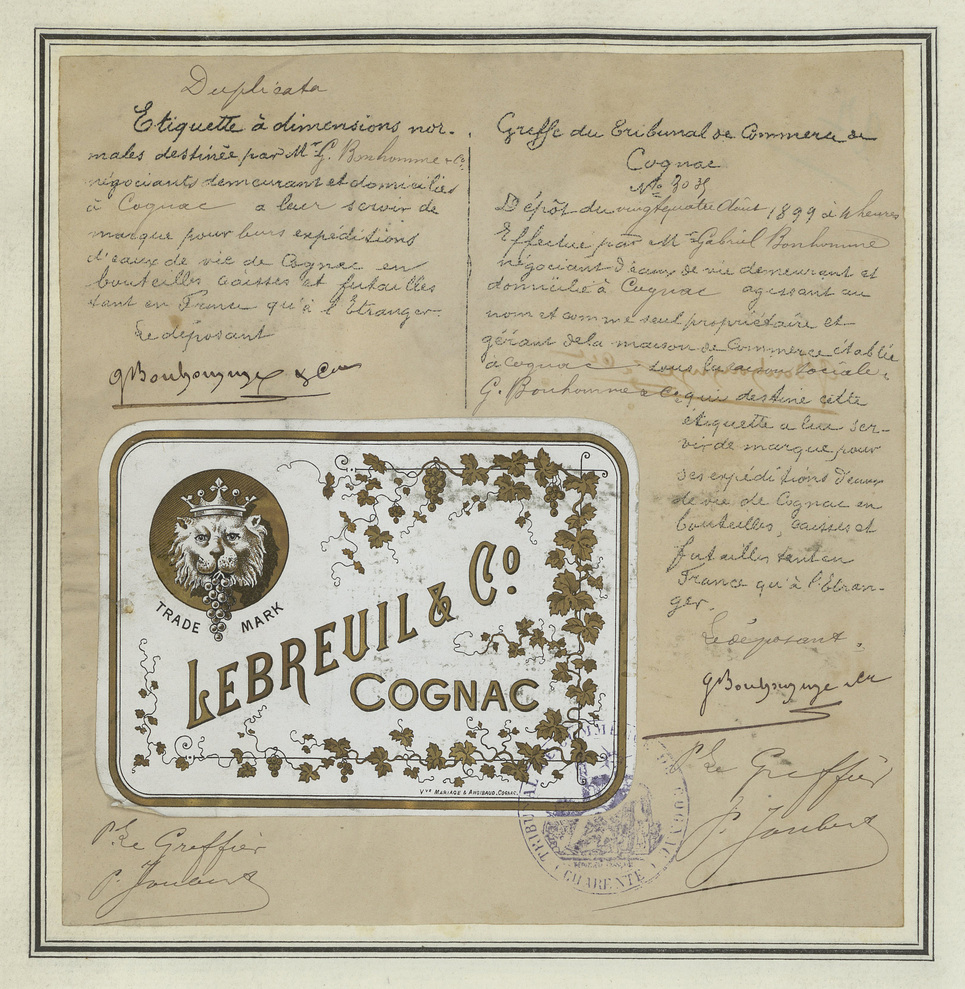 Duplicata
Etiquette à dimensions nor-
males destinée par Mr G. Bonhomme & Co
négociants demeurant et domiciliés
à Cognac a leur servir de
marque pour leurs expéditions
d'eaux de vie de Cognac en
bouteilles caisses et futailles
tant en France qu'à l'Etranger.
Le déposant
GBonhomme & Cie
Greffe du Tribunal de Commerce de
Cognac
No
Dépôt du vingtquatre Août 1899 à 4 heures
Effectué par Mr Gabriel Bonhomme
négociant d'eaux de vie demeurant et
domicilié à Cognac agissant au
nom et comme seul propriétaire et
gérant de la maison de Commerce établie
à Cognac sous la raison sociale
G. Bonhomme & Co qui destine cette
étiquette a leur ser-
vir de marque pour
ses expéditions d'eaux
de vie de Cognac en
bouteilles, caisses et
futailles tant en
France qu'à l'Etran-
ger.
Le déposant,
GBonhomme & Cie
TRADE MARK
LEBREUIL & Co
COGNAC
Vve MARIAGE & ANGIBAUD, COGNAC.
TRIBUNAL DE COMMERCE COGNAC
CHARENTE
Pr Le Greffier
P. Joubert
Pr Le Greffier
P. Joubert